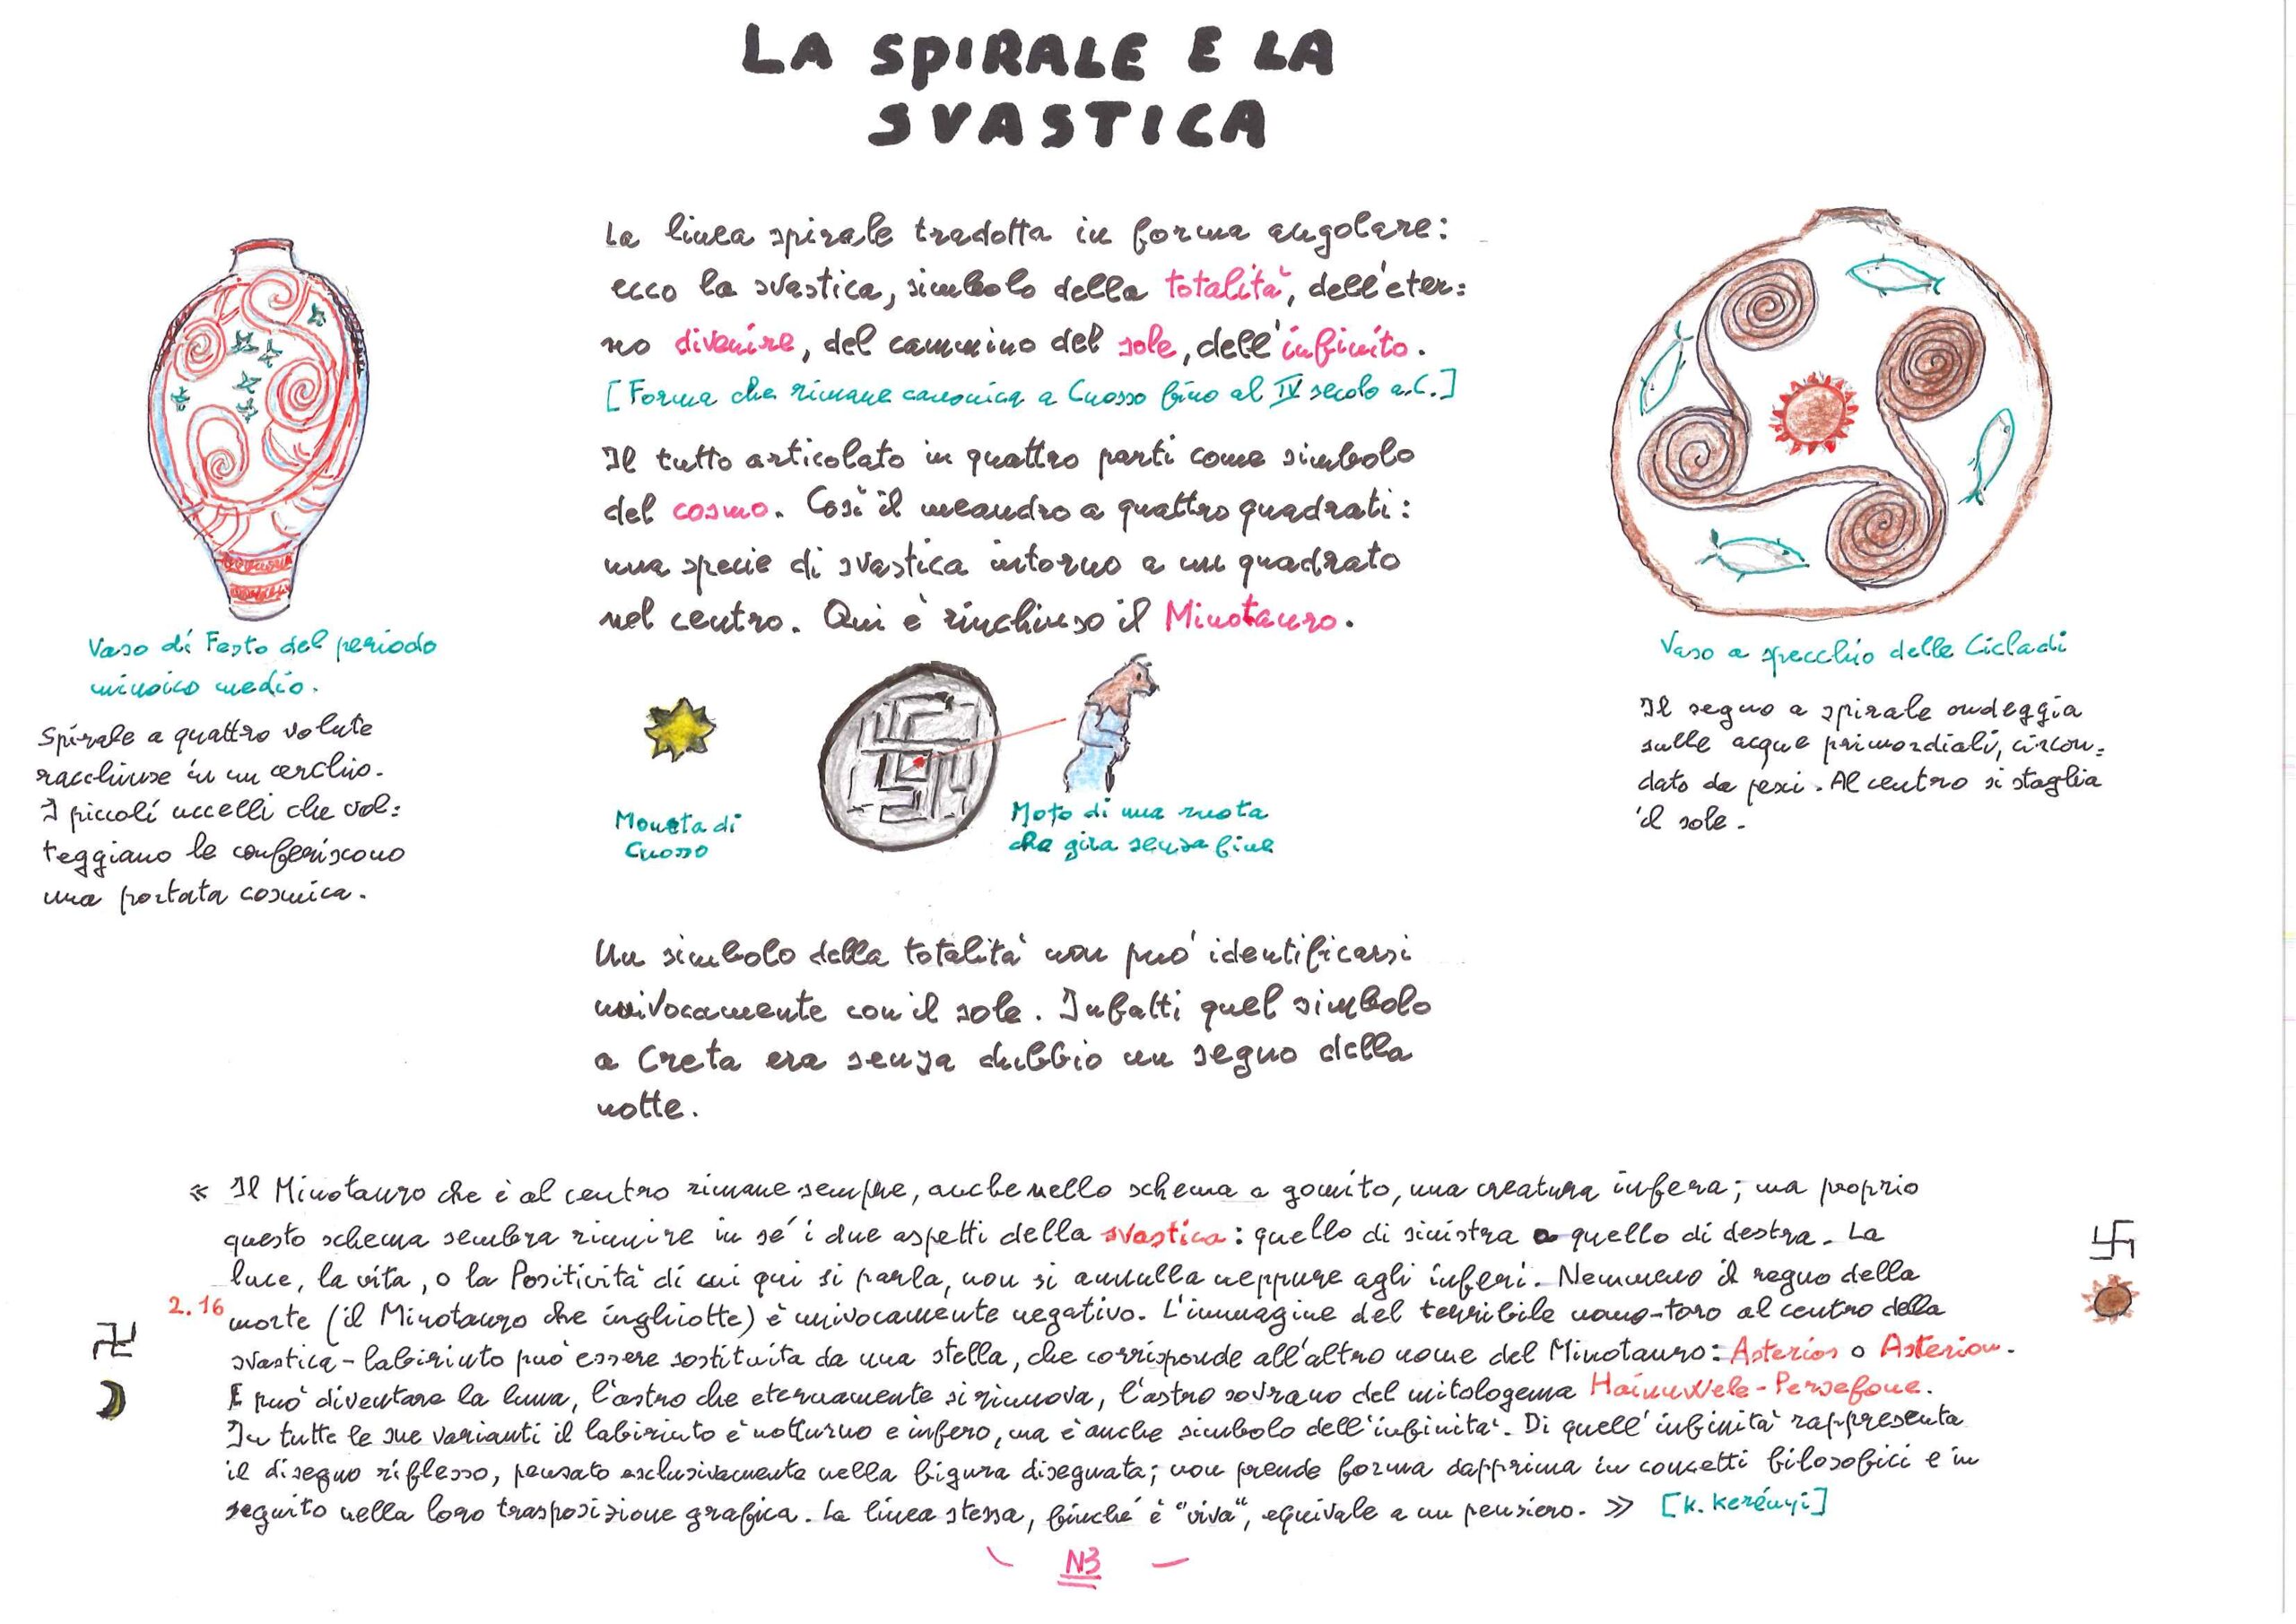 LA SPIRALE E LA
SVASTICA
La linea spirale tradotta in forma angolare:
ecco la svastica, simbolo della totalità, dell'eter=
no divenire, del cammino del sole, dell'infinito.
[Forma che rimane canonica a Cnosso fino al IV secolo a.C.]
Il tutto articolato in quattro parti come simbolo
del cosmo. Così il meandro a quattro quadrati:
una specie di svastica intorno a un quadrato
nel centro. Qui è rinchiuso il Minotauro.
Vaso di Festo del periodo
minoico medio.
Spirale a quattro volute
racchiuse in un cerchio.
I piccoli uccelli che vol=
teggiano le conferiscono
una portata cosmica.
Moneta di
Cnosso
Moto di una ruota
che gira senza fine
Vaso a specchio delle Cicladi
Il segno a spirale ondeggia
sulle acque primordiali, circon=
dato da pesci. Al centro si staglia
il sole.
Un simbolo della totalità non può identificarsi
univocamente con il sole. Infatti quel simbolo
a Creta era senza dubbio un segno della
notte.
« Il Minotauro che è al centro rimane sempre, anche nello schema a gomito, una creatura infera; ma proprio
questo schema sembra riunire in sé i due aspetti della svastica: quello di sinistra e quello di destra. La
luce, la vita, o la Positività di cui qui si parla, non si annulla neppure agli inferi. Nemmeno il regno della
2.16 morte (il Minotauro che inghiotte) è univocamente negativo. L'immagine del terribile uomo-toro al centro della
svastica-labirinto può essere sostituita da una stella, che corrisponde all'altro nome del Minotauro: Asterios o Asterion.
E può diventare la luna, l'astro che eternamente si rinnova, l'astro sovrano del mitologema Hainuwele-Persefone.
In tutte le sue varianti il labirinto è notturno e infero, ma è anche simbolo dell'infinità. Di quell'infinità rappresenta
il disegno riflesso, pensato esclusivamente nella figura disegnata; non prende forma dapprima in concetti filosofici e in
seguito nella loro trasposizione grafica. La linea stessa, finché è "viva", equivale a un pensiero. » [K. Kerényi]
N3